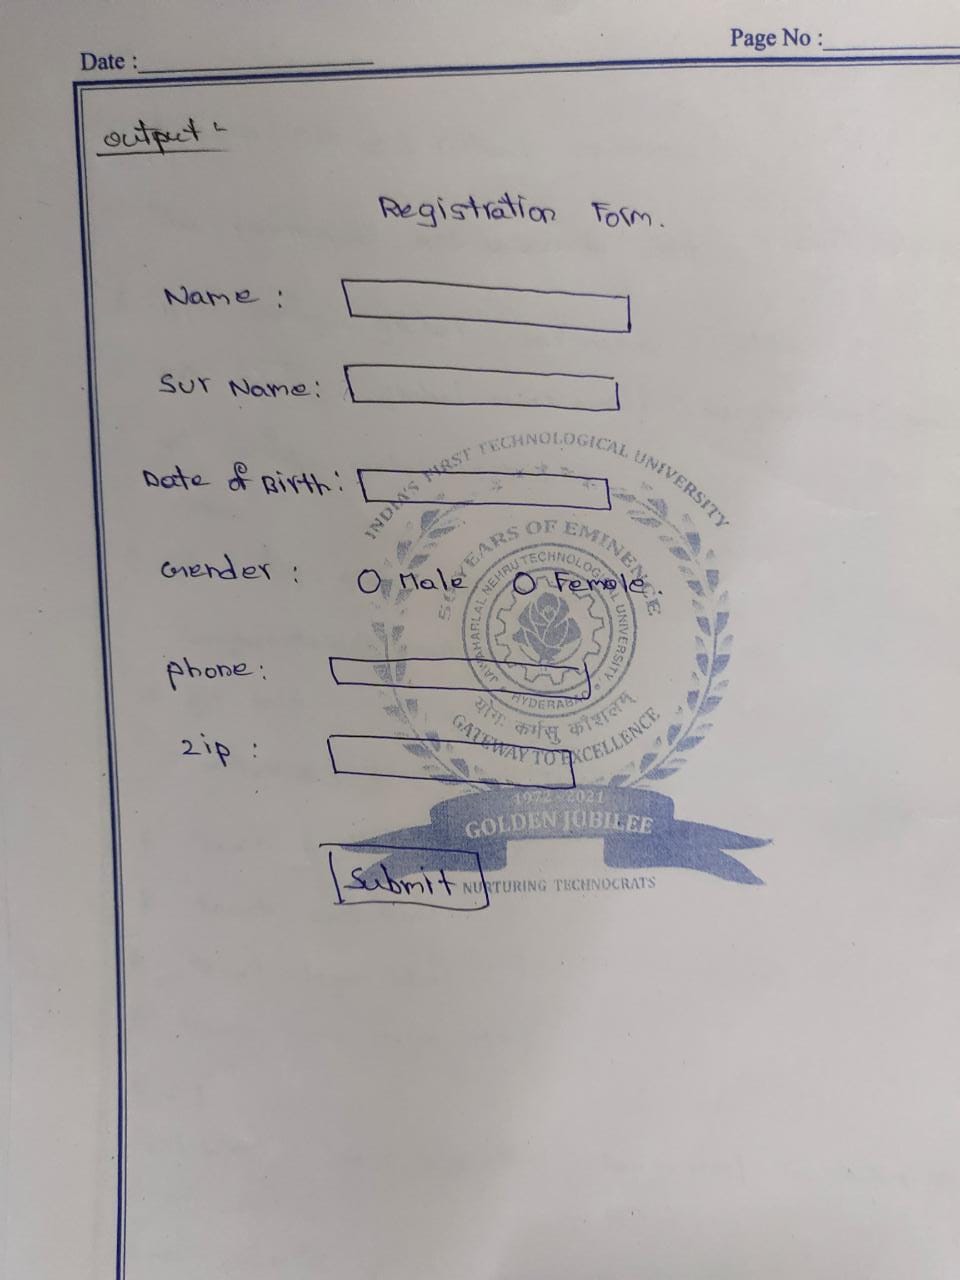 Page No :
Date :
output -
Registration Form.
Name :
Sur Name:
Date of Birth:
Gender : O Male O Female.
phone:
zip :
Submit
INDIA'S FIRST TECHNOLOGICAL UNIVERSITY
50 YEARS OF EMINENCE
JAWAHARLAL NEHRU TECHNOLOGICAL UNIVERSITY
HYDERABAD
योगः कर्मसु कौशलम्
GATEWAY TO EXCELLENCE
1972 - 2021
GOLDEN JUBILEE
NURTURING TECHNOCRATS